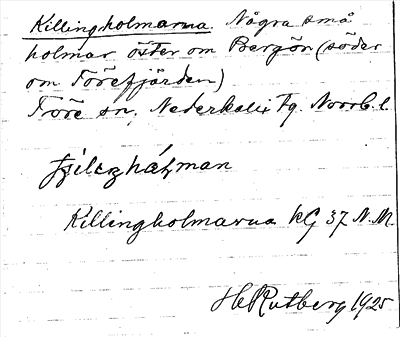 Killingholmarna. Några små
holmar öster om Bergön (söder
om Törefjärden)
Töre sn, Nederkalix Tg. Norrb. l.
Killingholmarna kG 37 N.M.
H Rutberg 1925